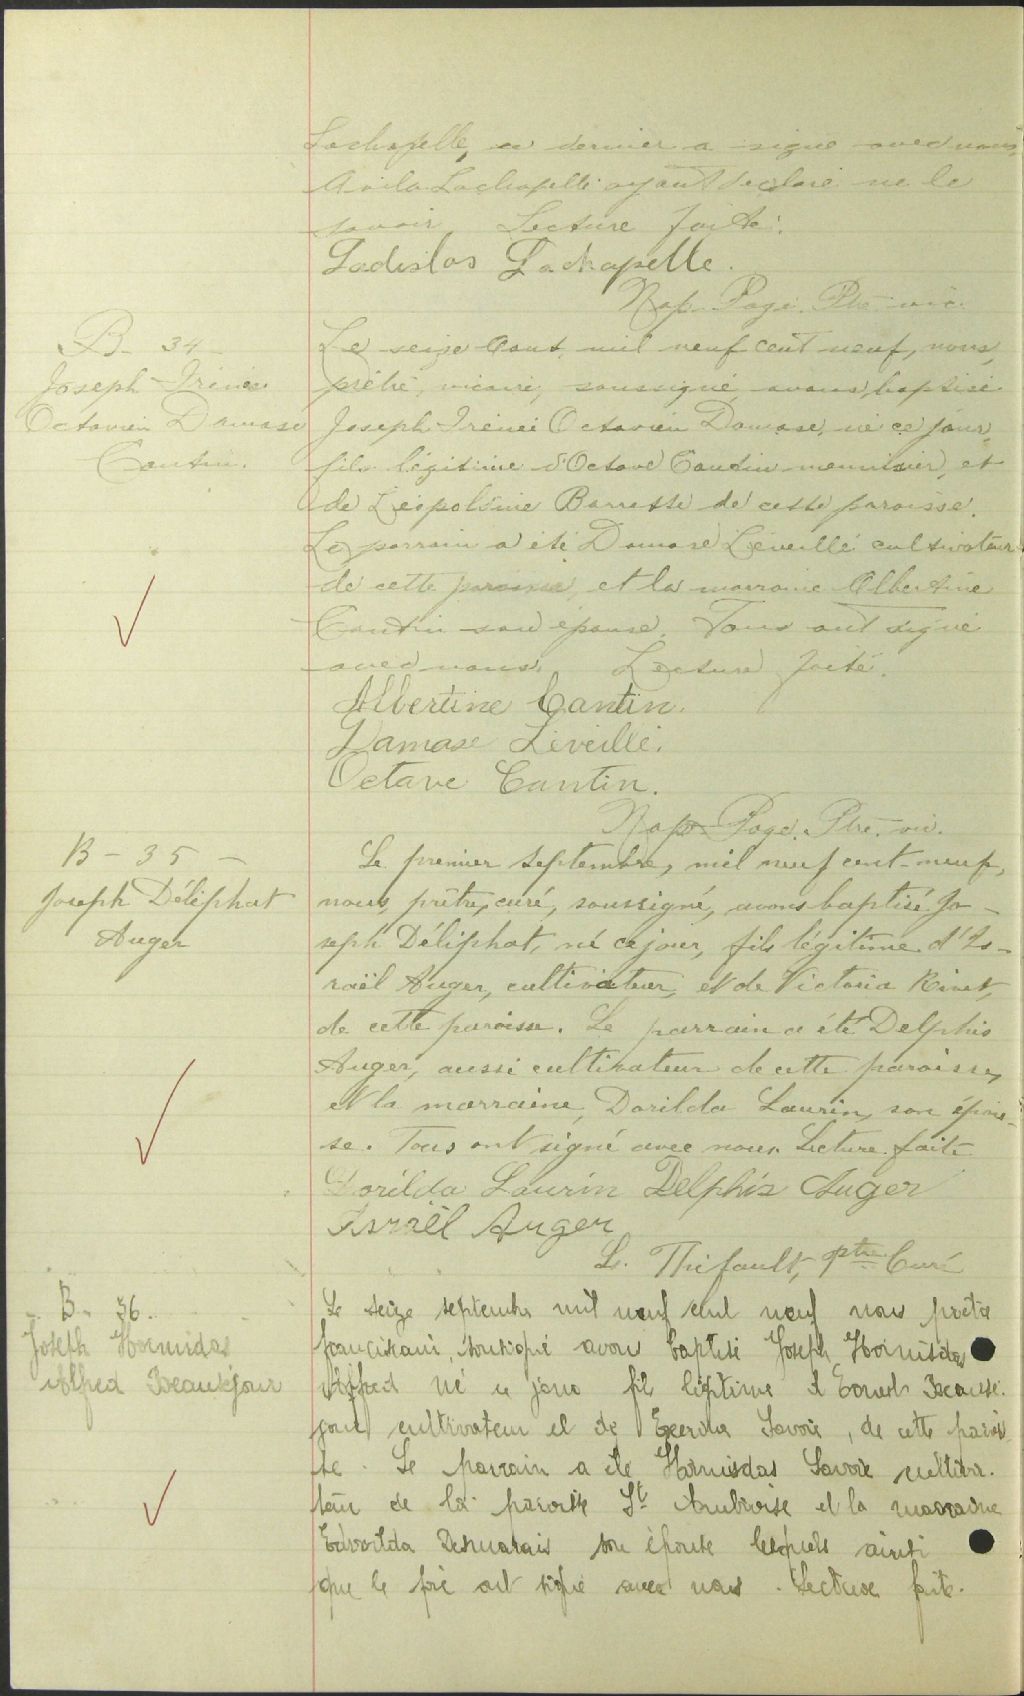 Lachapelle, ce dernier a signé avec nous,
Avila Lachapelle ayant déclaré ne le
savoir. Lecture faite.
Ladislas Lachapelle.
Nap. Page. Ptre. vic.
B- 34
Joseph Irénée
Octavien Damase
Cantin.
Le seize Aout, mil neuf cent neuf, nous,
prêtre, vicaire, soussigné, avons baptisé
Joseph Irénée Octavien Damase, né ce jour,
fils légitime d'Octave Cantin menuisier, et
de Léopoldine Barrette de cette paroisse.
Le parrain a été Damase Léveillé cultivateur
de cette paroisse, et la marraine Albertine
Cantin son épouse. Tous ont signé
avec nous. Lecture faite.
Albertine Cantin.
Damase Léveillé.
Octave Cantin.
Nap. Page. Ptre. vic.
B - 35 -
Joseph Déliphat
Auger
Le premier septembre, mil neuf cent-neuf,
nous, prêtre, curé, soussigné, avons baptisé Jo-
seph Déliphat, né ce jour, fils légitime d'Is-
raël Auger, cultivateur, et de Victoria Rivet,
de cette paroisse. Le parrain a été Delphis
Auger, aussi cultivateur de cette paroisse,
et la marraine, Dorilda Laurin, son épou-
se. Tous ont signé avec nous. Lecture faite
Dorilda Laurin Delphis Auger
Israël Auger
L. Thifault, ptre Curé
B- 36.
Joseph Hormidas
Alfred Beausejour
Le seize septembre mil neuf cent neuf nous prêtre
franciscain, soussigné avons baptisé Joseph Hormisdas
Alfred né ce jour fils légitime d'Ernest Beause-
jour cultivateur et de Savoie, de cette parois-
se. Le parrain a été Hormisdas Savoie cultiva-
teur de la paroisse St Ambroise et la marraine
Edwilda Desmarais son épouse lesquels ainsi
que le père ont signé avec nous. Lecture faite.